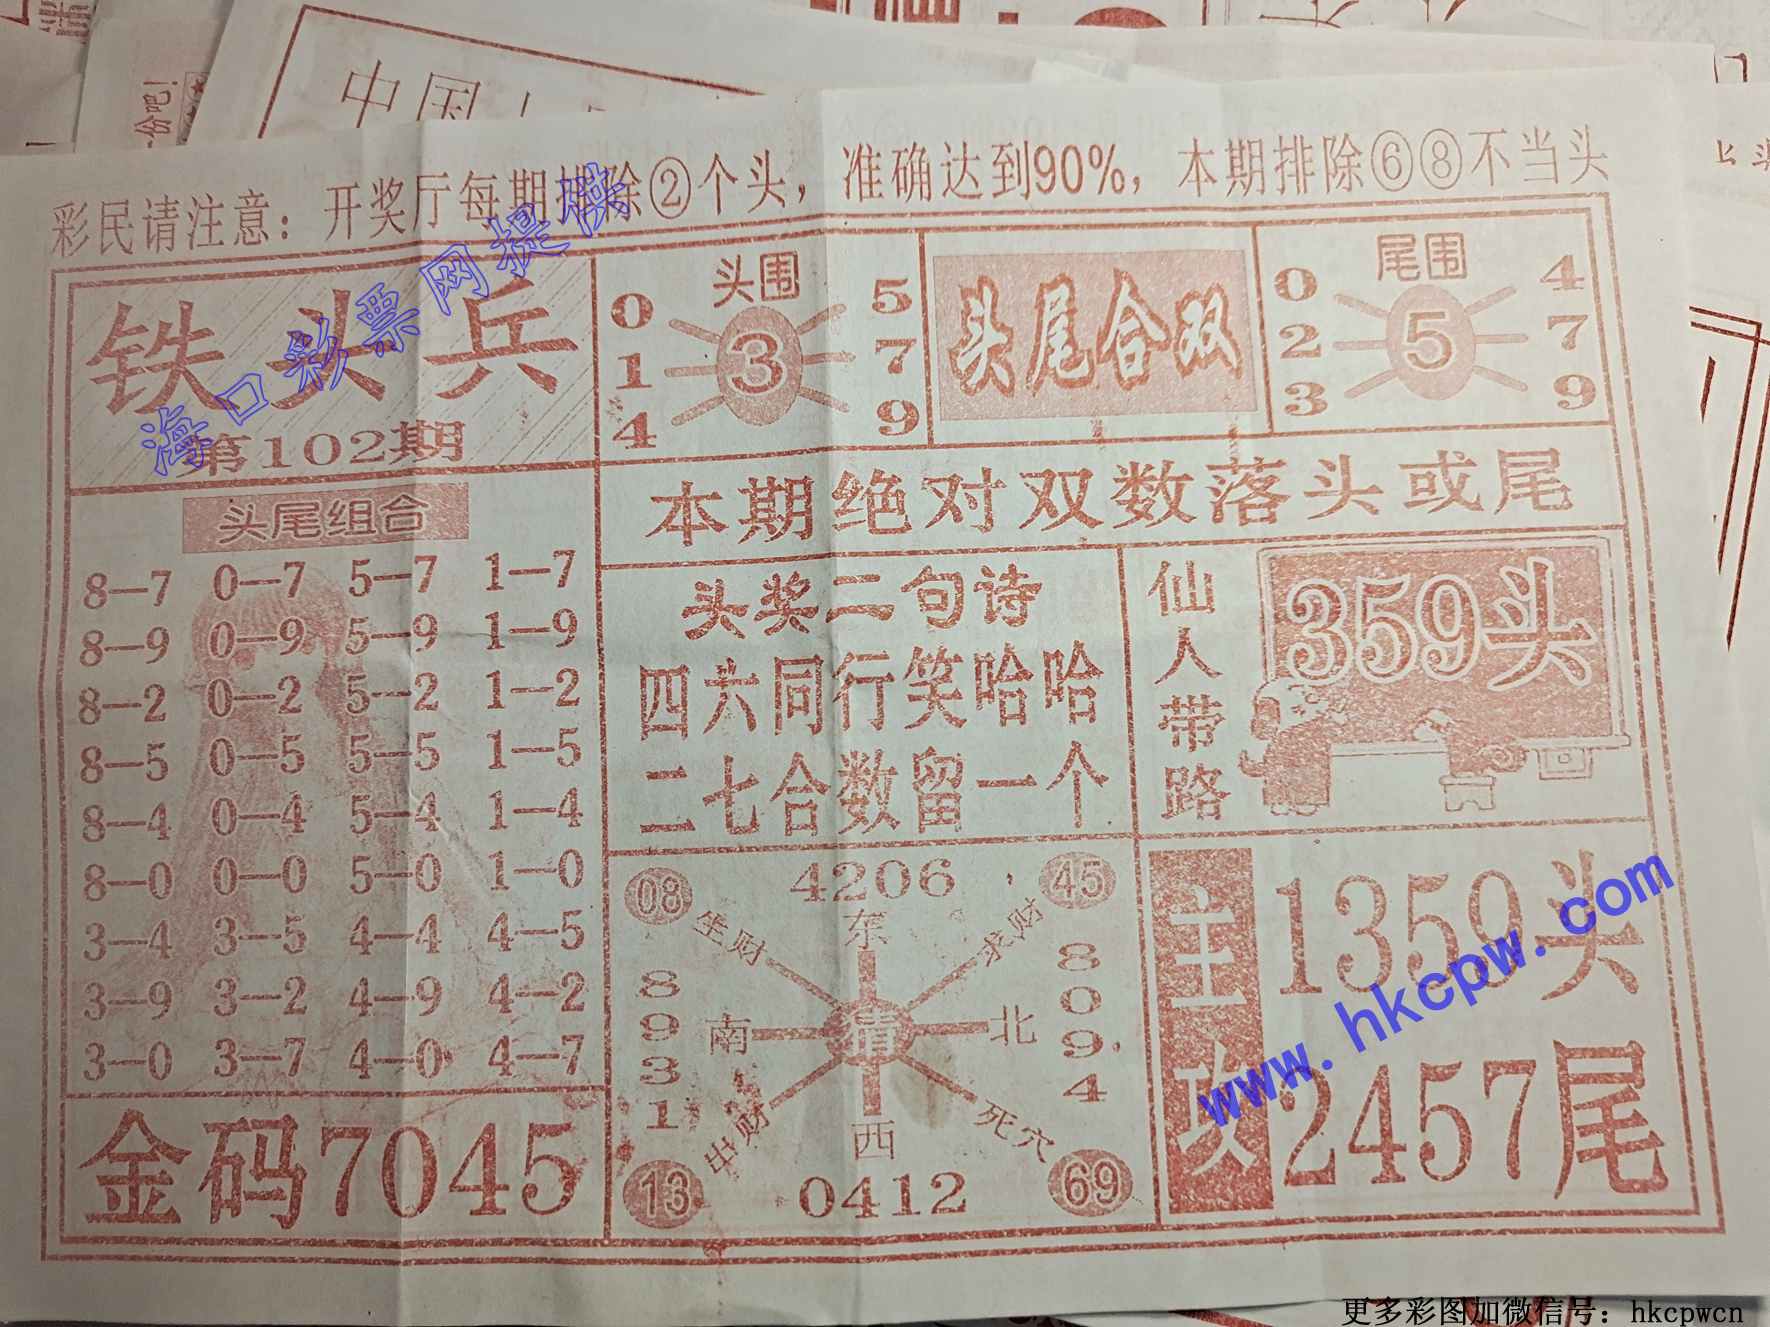 中国
份吧!
彩民请注意：开奖厅每期排除②个头，准确达到90%，本期排除⑥⑧不当头
铁头兵
第102期
头围
0 5
1 3 7
4 9
头尾合双
尾围
0 4
2 5 7
3 9
本期绝对双数落头或尾
头尾组合
8—7 0—7 5—7 1—7
8—9 0—9 5—9 1—9
8—2 0—2 5—2 1—2
8—5 0—5 5—5 1—5
8—4 0—4 5—4 1—4
8—0 0—0 5—0 1—0
3—4 3—5 4—4 4—5
3—9 3—2 4—9 4—2
3—0 3—7 4—0 4—7
金码7045
头奖二句诗
四六同行笑哈哈
二七合数留一个
仙人带路
359头
08 4206 45
生财 东 求财
8931 南 猜 北 8094
出财 西 死穴
13 0412 69
主攻
1359头
2457尾
海口彩票网提供
www.hkcpw.com
更多彩图加微信号：hkcpwcn